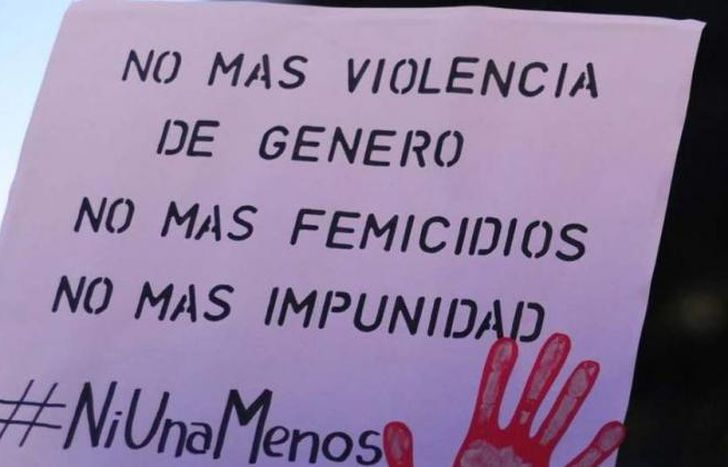 NO MAS VIOLENCIA
DE GENERO
NO MAS FEMICIDIOS
NO MAS IMPUNIDAD
#NiUnaMenos